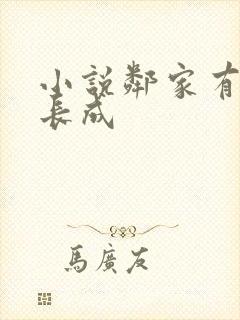 小說鄰家有
長成
馬廣友